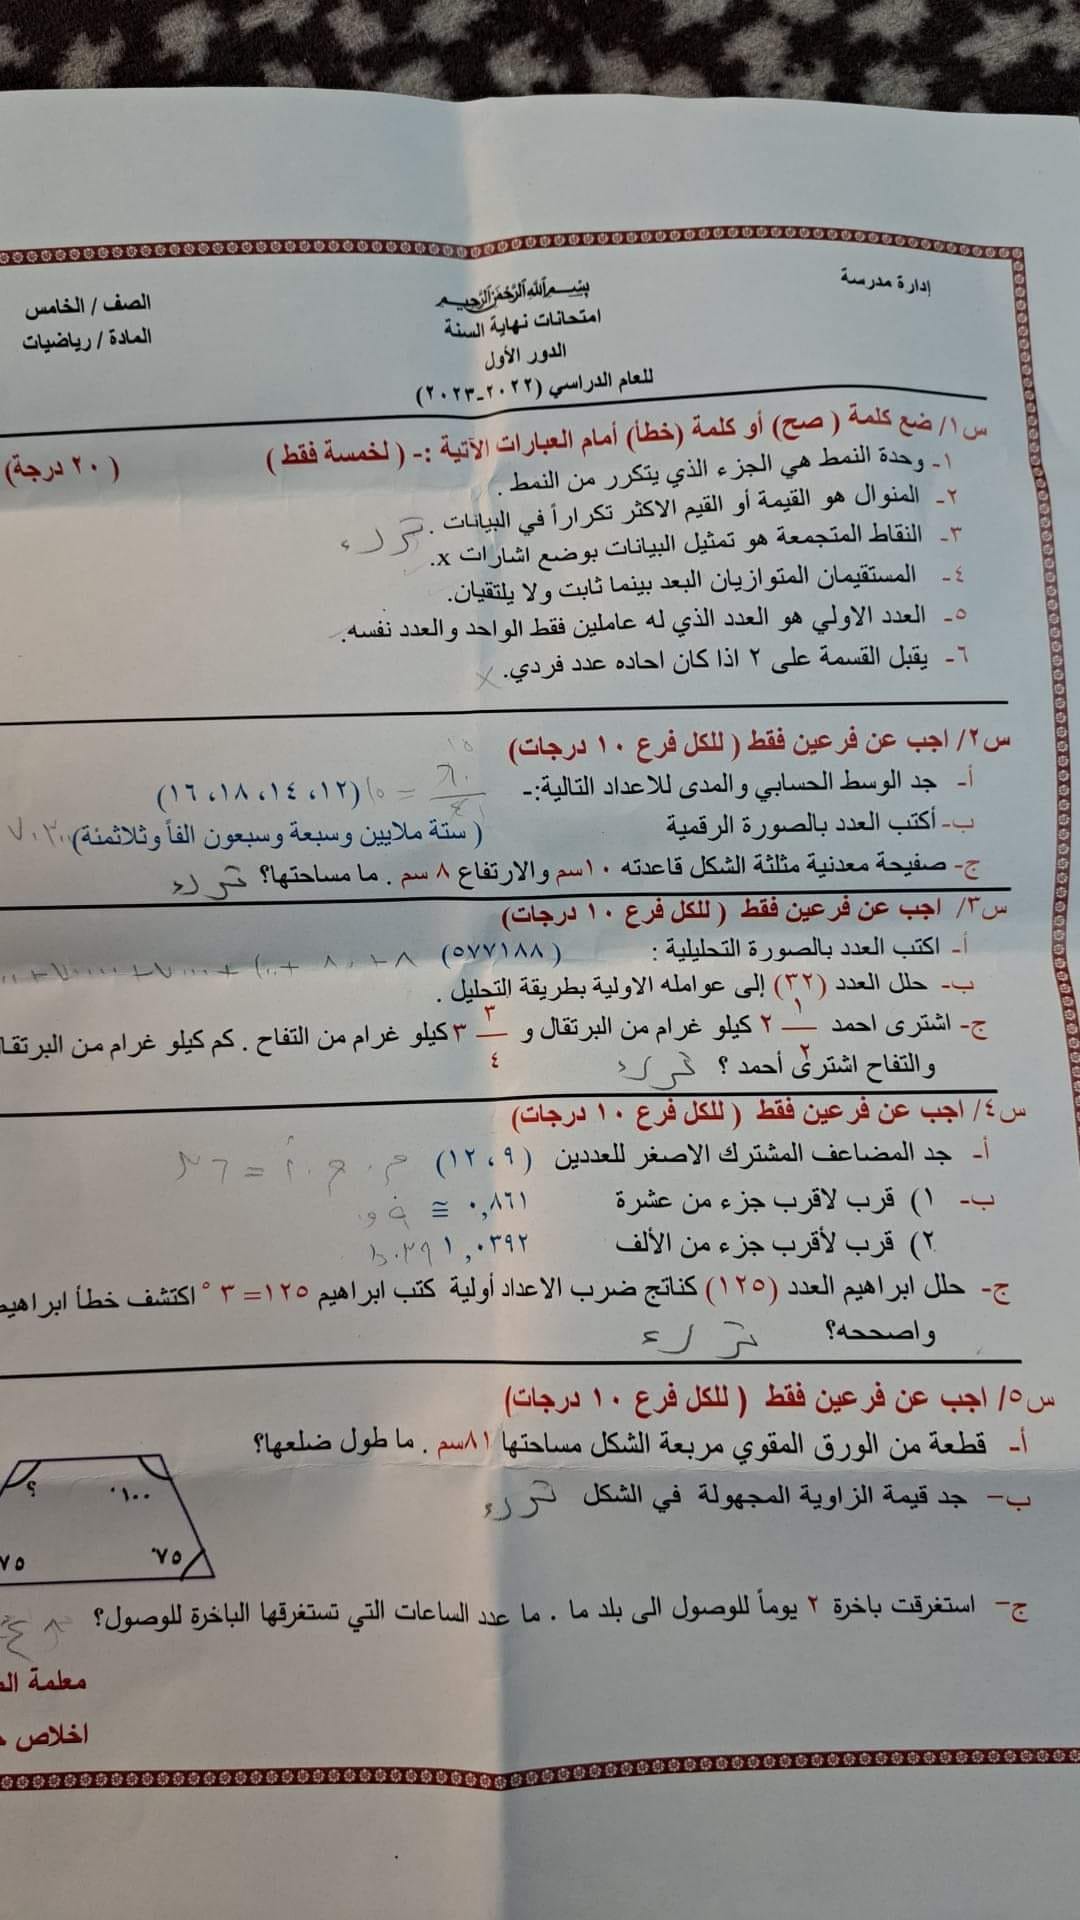 إدارة مدرسة
بسم الله الرحمن الرحيم
امتحانات نهاية السنة
الدور الأول
للعام الدراسي (٢٠٢٢-٢٠٢٣)
الصف / الخامس
المادة / رياضيات
س١/ ضع كلمة ( صح) أو كلمة (خطأ) أمام العبارات الآتية :- ( لخمسة فقط ) ( ٢٠ درجة)
١- وحدة النمط هي الجزء الذي يتكرر من النمط .
٢- المنوال هو القيمة أو القيم الاكثر تكراراً في البيانات . ترك
٣- النقاط المتجمعة هو تمثيل البيانات بوضع اشارات x.
٤- المستقيمان المتوازيان البعد بينما ثابت ولا يلتقيان.
٥- العدد الاولي هو العدد الذي له عاملين فقط الواحد والعدد نفسه.
٦- يقبل القسمة على ٢ اذا كان احاده عدد فردي. x
س٢/ اجب عن فرعين فقط ( للكل فرع ١٠ درجات)
أ- جد الوسط الحسابي والمدى للاعداد التالية:- (١٢، ١٤، ١٨، ١٦) ٦٠/٤ = ١٥
ب- أكتب العدد بالصورة الرقمية ( ستة ملايين وسبعة وسبعون الفاً وثلاثمئة)
ج- صفيحة معدنية مثلثة الشكل قاعدته ١٠سم والارتفاع ٨ سم . ما مساحتها؟ ترك
س٣/ اجب عن فرعين فقط ( للكل فرع ١٠ درجات)
أ- اكتب العدد بالصورة التحليلية : (٥٧٧١٨٨)
ب- حلل العدد (٣٢) إلى عوامله الاولية بطريقة التحليل .
ج- اشترى احمد ١/٢ ٢ كيلو غرام من البرتقال و ٣/٤ ٣ كيلو غرام من التفاح . كم كيلو غرام من البرتقا
والتفاح اشترى أحمد ؟ ترك
س٤/ اجب عن فرعين فقط ( للكل فرع ١٠ درجات)
أ- جد المضاعف المشترك الاصغر للعددين (٩ ، ١٢)
ب- ١) قرب لاقرب جزء من عشرة ٠,٨٦١ ≅
٢) قرب لأقرب جزء من الألف ١,٠٣٩٢
ج- حلل ابراهيم العدد (١٢٥) كناتج ضرب الاعداد أولية كتب ابراهيم ١٢٥= ٣⁵ اكتشف خطأ ابراهيم
واصححه؟ ترك
س٥/ اجب عن فرعين فقط ( للكل فرع ١٠ درجات)
أ- قطعة من الورق المقوي مربعة الشكل مساحتها ٨١سم . ما طول ضلعها؟
ب- جد قيمة الزاوية المجهولة في الشكل ترك
١٠٠° ؟
٧٥° ٧٥
ج- استغرقت باخرة ٢ يوماً للوصول الى بلد ما . ما عدد الساعات التي تستغرقها الباخرة للوصول؟
معلمة
اخلاص